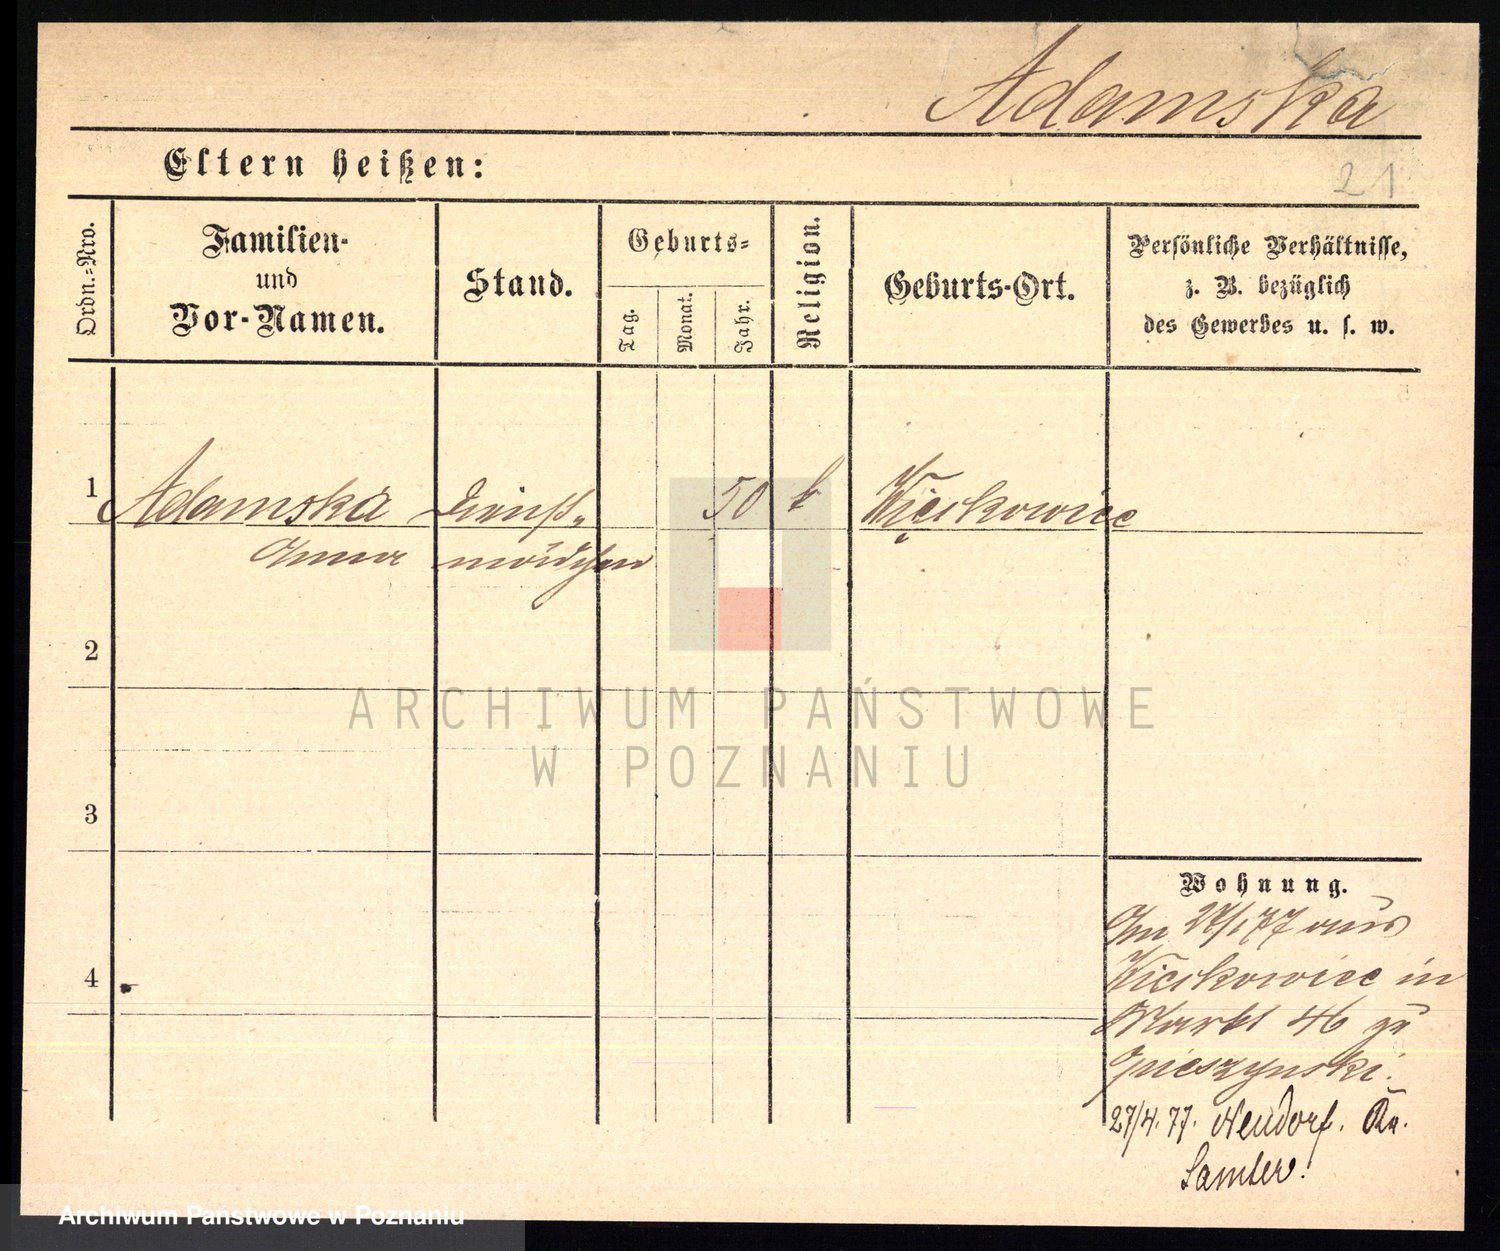 Adamska
Eltern heißen:
21
Ordn.-Nro.
Familien-
und
Vor-Namen.
Stand.
Geburts-
Tag.
Monat.
Jahr.
Religion.
Geburts-Ort.
Persönliche Verhältnisse,
z. B. bezüglich
des Gewerbes u. s. w.
1 Adamska Dienst- 50 k Więckowice
Anna mädchen
2
ARCHIWUM PAŃSTWOWE
W POZNANIU
3
Wohnung.
77 aus
4
Wieckowice in
Markt 46 zu
27/4. 77. Neudorf. Kr.
Samter.
Archiwum Państwowe w Poznaniu